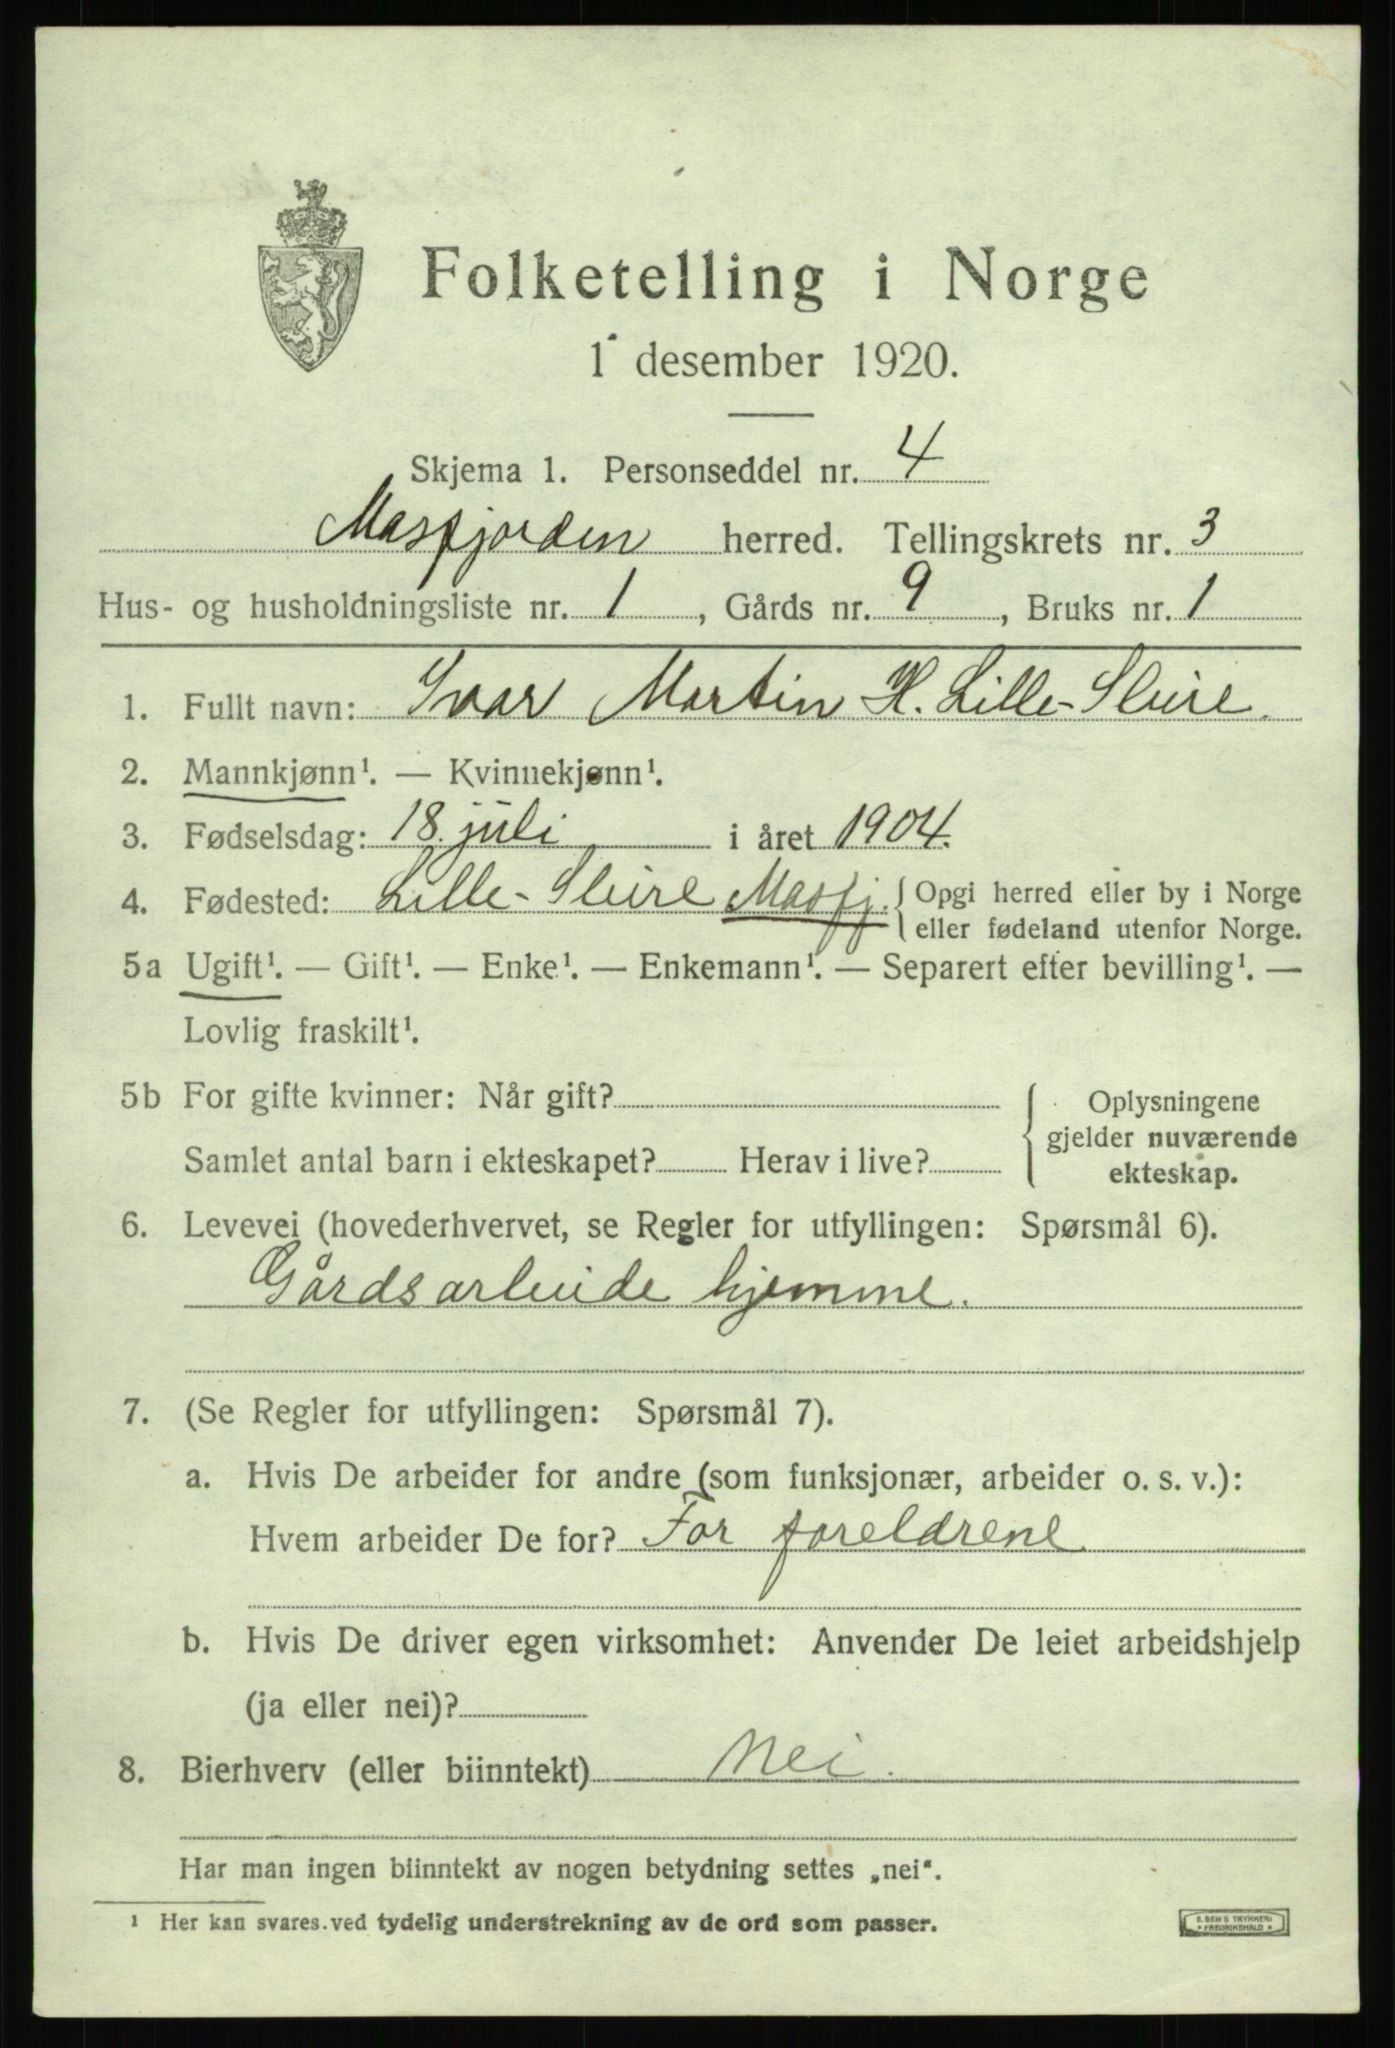 Folketelling i Norge
1 desember 1920.
Skjema 1. Personseddel nr. 4
Masfjorden herred. Tellingskrets nr. 3
Hus- og husholdningsliste nr. 1, Gårds nr. 9, Bruks nr. 1
1. Fullt navn: Ivar Martin H. Lille-Sleire.
2. Mannkjønn¹. — Kvinnekjønn¹.
3. Fødselsdag: 18. juli i året 1904.
4. Fødested: Lille-Sleire Masfj. { Opgi herred eller by i Norge
eller fødeland utenfor Norge.
5a Ugift¹. — Gift¹. — Enke¹. — Enkemann¹. — Separert efter bevilling¹. —
Lovlig fraskilt¹.
5b For gifte kvinner: Når gift?
Samlet antal barn i ekteskapet? Herav i live?
Oplysningene
gjelder nuværende
ekteskap.
6. Levevei (hovederhvervet, se Regler for utfyllingen: Spørsmål 6).
Gårdsarbeide hjemme.
7. (Se Regler for utfyllingen: Spørsmål 7).
a. Hvis De arbeider for andre (som funksjonær, arbeider o. s. v.):
Hvem arbeider De for? For foreldrene
b. Hvis De driver egen virksomhet: Anvender De leiet arbeidshjelp
(ja eller nei)?
8. Bierhverv (eller biinntekt) Nei.
Har man ingen biinntekt av nogen betydning settes „nei“.
¹ Her kan svares ved tydelig understrekning av de ord som passer.
E. SEM'S TRYKKERI
FREDRIKSHALD